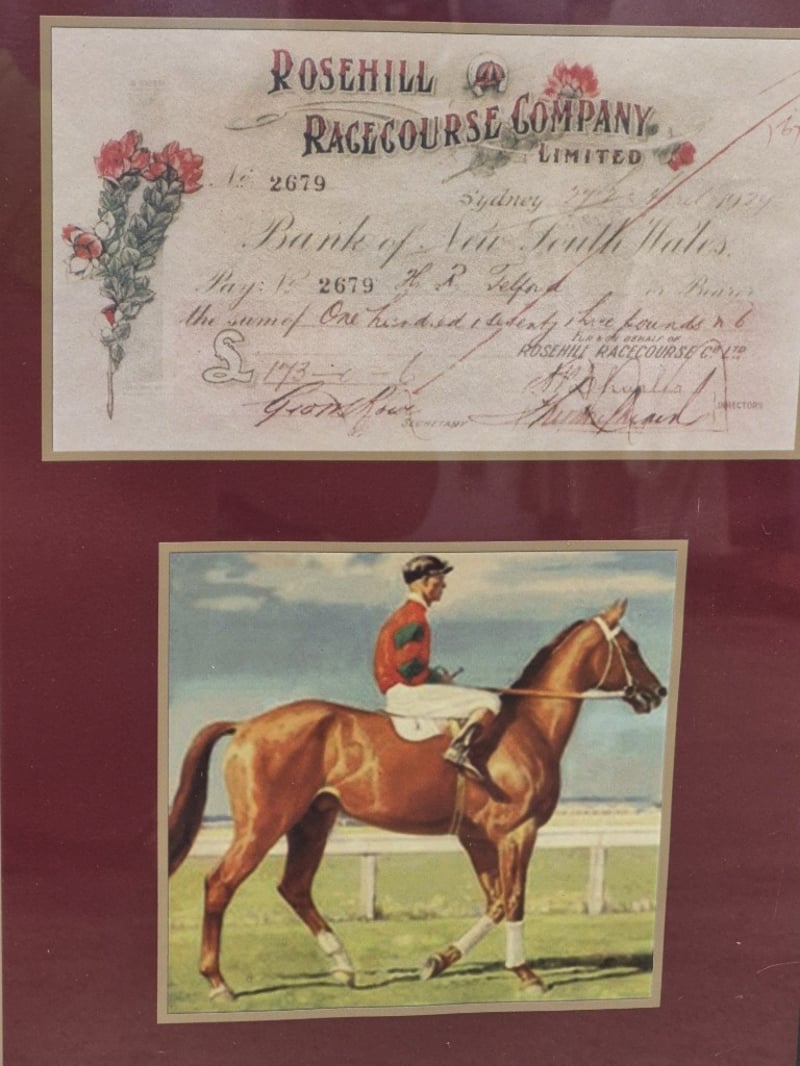 ROSEHILL
RACECOURSE COMPANY
LIMITED
No 2679
Sydney 27th April 1929
Bank of New South Wales.
Pay: No 2679 H. R. Telford or Bearer
the sum of One hundred & seventy three pounds n 6
FOR & ON BEHALF OF
ROSEHILL RACECOURSE Co LTD
£ 173 - - 6
SECRETARY
DIRECTORS